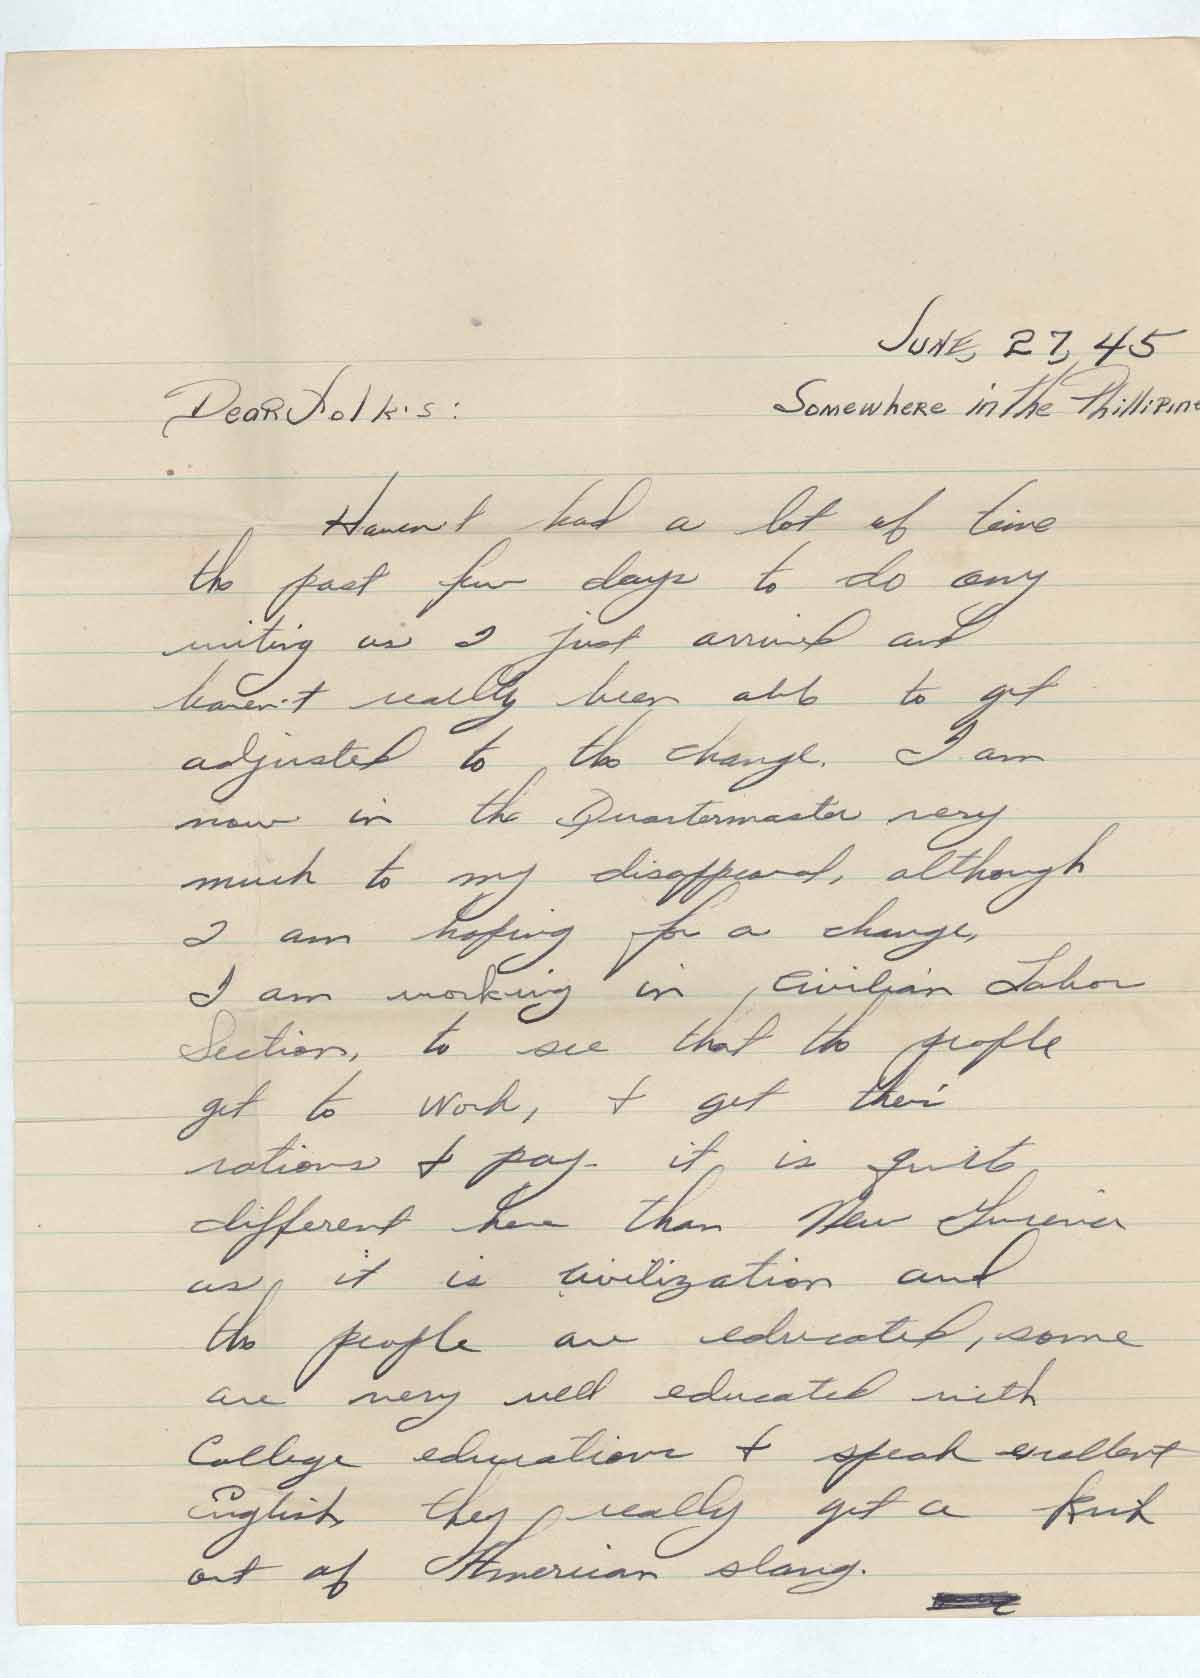 June, 27, 45
Dear Folk's: Somewhere in the Phillipine
Haven't had a lot of time
the past few days to do any
writing as I just arrived and
haven't really been able to get
adjusted to the change. I am
now in the Quartermaster very
much to my disapproval, although
I am hoping for a change,
I am working in Civilian Labor
Section, to see that the people
get to work, & get their
rations & pay. it is quite
different here than New Guinea
as it is civilization and
the people are educated, some
are very well educated with
College educations & speak excellent
English, they really get a kick
out of American slang.